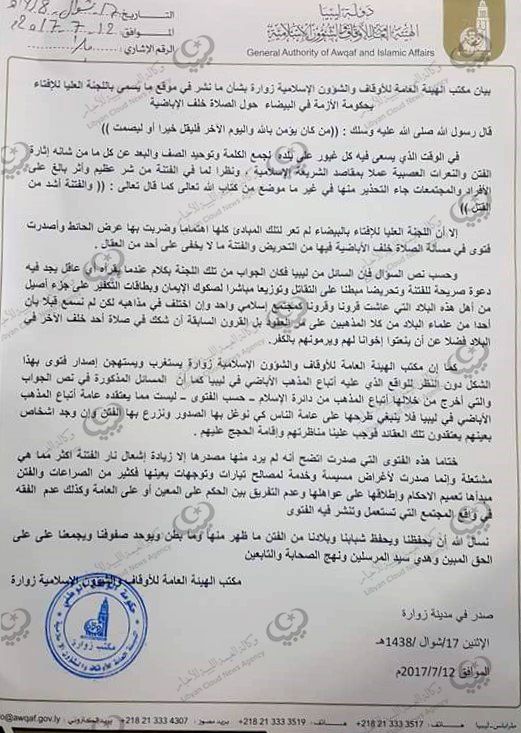 دولة ليبيا
الهيئة العامة للأوقاف والشؤون الإسلامية
General Authority of Awqaf and Islamic Affairs
التاريخ: 17 شوال 1438هـ
الموافق: 12-7-2017م
الرقم الإشاري:
بيان مكتب الهيئة العامة للأوقاف والشؤون الإسلامية زوارة بشأن ما نشر في موقع ما يسمى باللجنة العليا للإفتاء
بحكومة الأزمة في البيضاء حول الصلاة خلف الإباضية
قال رسول الله صلى الله عليه وسلك : ((من كان يؤمن بالله واليوم الآخر فليقل خيرا أو ليصمت ))
في الوقت الذي يسعى فيه كل غيور على بلده لجمع الكلمة وتوحيد الصف والبعد عن كل ما من شانه إثارة
الفتن والنعرات العصبية عملا بمقاصد الشريعة الإسلامية ، ونظرا لما في الفتنة من شر عظيم وأثر بالغ على
الأفراد والمجتمعات جاء التحذير منها في غير ما موضع من كتاب الله تعالى كما قال تعالى : (( والفتنة أشد من
القتل ))
إلا أن اللجنة العليا للإفتاء بالبيضاء لم تعر لتلك المبادئ كلها اهتماما وضربت بها عرض الحائط وأصدرت
فتوى في مسألة الصلاة خلف الأباضية فيها من التحريض والفتنة ما لا يخفى على أحد من العقال .
وحسب نص السؤال فإن السائل من ليبيا فكان الجواب من تلك اللجنة بكلام عندما يقرأه أي عاقل يجد فيه
دعوة صريحة للفتنة وتحريضا مبطنا على التقاتل وتوزيعا مباشرا لصكوك الإيمان وبطاقات التكفير على جزء أصيل
من أهل هذه البلاد التي عاشت قرونا وقرونا كمجتمع إسلامي واحد وإن اختلف في مذاهبه لكن لم نسمع قبلا بأن
أحدا من علماء البلاد من كلا المذهبين على مر العقود بل القرون السابقة أن شكك في صلاة أحد خلف الآخر في
البلاد فضلا عن أن ينعتوا إخوانا لهم ويرمونهم بالكفر.
كما إن مكتب الهيئة العامة للأوقاف والشؤون الإسلامية زوارة يستغرب ويستهجن إصدار فتوى بهذا
الشكل دون النظر للواقع الذي عليه أتباع المذهب الأباضي في ليبيا كما أن المسائل المذكورة في نص الجواب
والتي أخرج من خلالها أتباع المذهب من دائرة الإسلام – حسب الفتوى – ليست مما يعتقده عامة أتباع المذهب
الأباضي في ليبيا فلا ينبغي طرحها على عامة الناس كي نوغل بها الصدور ونزرع بها الفتن وإن وجد اشخاص
بعينهم يعتقدون تلك العقائد فوجب علينا مناظرتهم وإقامة الحجج عليهم .
ختاما هذه الفتوى التي صدرت اتضح أنه لم يرد منها مصدرها إلا زيادة إشعال نار الفتنة أكثر مما هي
مشتعلة وإنما صدرت لأغراض مسيسة وخدمة لمصالح تيارات وتوجهات بعينها فكثير من الصراعات والفتن
مبدأها تعميم الاحكام وإطلاقها على عواهلها وعدم التفريق بين الحكم على المعين أو على العامة وكذلك عدم الفقه
في واقع المجتمع التي تستعمل وتنشر فيه الفتوى
نسأل الله أن يحفظنا ويحفظ شبابنا وبلادنا من الفتن ما ظهر منها وما بطن ويوحد صفوفنا ويجمعنا على على
الحق المبين وهدي سيد المرسلين ونهج الصحابة والتابعين
مكتب الهيئة العامة للأوقاف والشؤون الإسلامية زوارة
مكتب زوارة
صدر في مدينة زوارة
الإثنين 17/شوال /1438هـ
الموافق 2017/7/12م
طرابلس - ليبيا هاتف : 3517 333 21 218+ هاتف : 3519 333 21 218+ بريد مصور : 4307 333 21 218+ بريد إلكتروني : o@awqaf.gov.ly
وكالة الغيمة الليبية للأخبار
Libyan Cloud News Agency